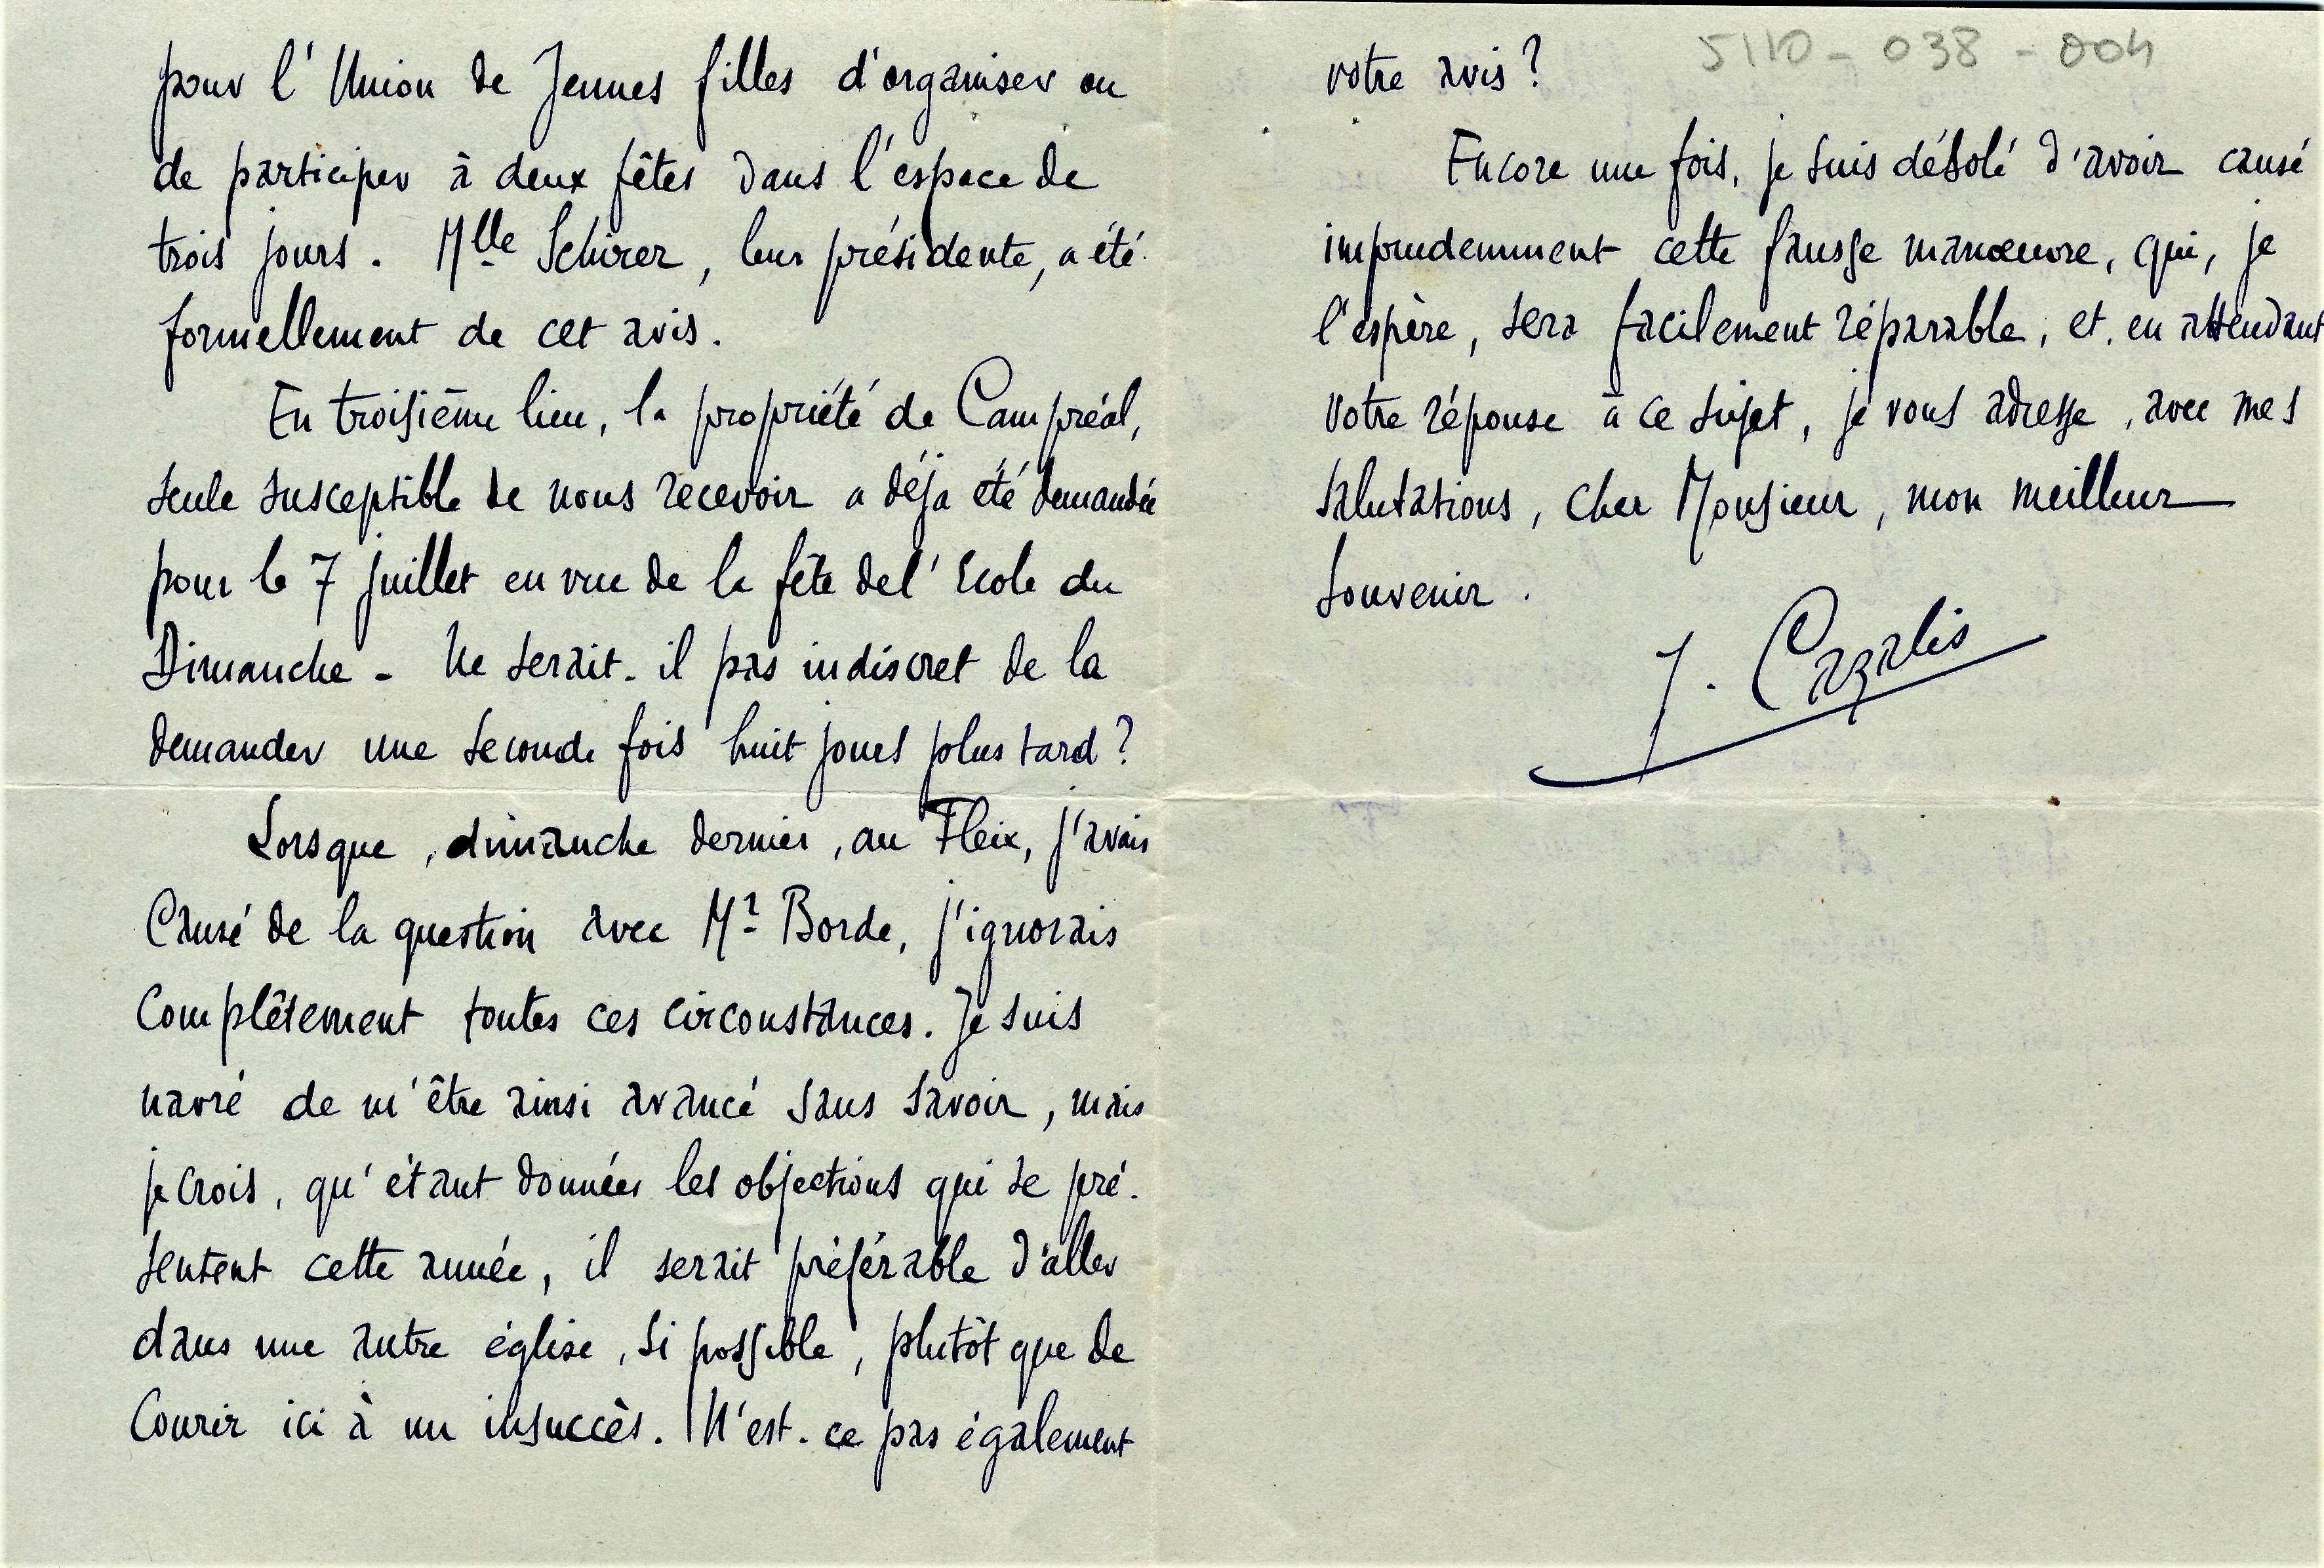 pour l'Union de Jeunes filles d'organiser ou
de participer à deux fêtes dans l'espace de
trois jours. Mlle Schirer, leur présidente, a été
formellement de cet avis.
En troisième lieu, la propriété de Campréal,
seule susceptible de nous recevoir a déja été demandée
pour le 7 juillet en vue de la fête de l'Ecole du
Dimanche - Ne serait-il pas indiscret de la
demander une seconde fois huit jours plus tard ?
Lorsque, dimanche dernier, au Fleix, j'avais
causé de la question avec Mr Borde, j'ignorais
complêtement toutes ces circonstances. Je suis
navré de m'être ainsi avancé sans savoir, mais
je crois, qu'étant données les objections qui se pré-
sentent cette année, il serait préférable d'aller
dans une autre église, si possible, plutôt que de
courir ici à un insuccès. N'est-ce pas également
5110-038-004
votre avis ?
Encore une fois, je suis désolé d'avoir causé
imprudemment cette fausse manœuvre, qui, je
l'espère, sera facilement réparable, et, en attendant
votre réponse à ce sujet, je vous adresse, avec mes
salutations, cher Monsieur, mon meilleur
souvenir.
J. Cazalis